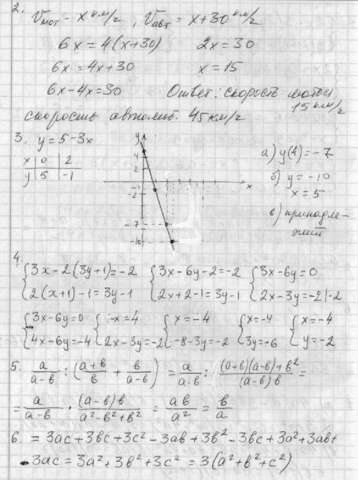 2. Vмот – x км/г, Vавт = x + 30 км/г
6x = 4(x+30)   2x = 30
6x = 4x + 30   x = 15
6x - 4x = 30   Ответ: скорость
15 км/г
скорость автомоб. 45 км/г
3. y = 5 - 3x
x | 0 | 2
y | 5 | -1
y
x
-7
-10
а) y(4) = -7
б) y = -10
x = 5
в) принадле-
жит
4. {3x - 2(3y+1) = -2   {3x - 6y - 2 = -2   {3x - 6y = 0
{2(x+1) - 1 = 3y - 1   {2x + 2 - 1 = 3y - 1   {2x - 3y = -2 |·2
{3x - 6y = 0   {-x = 4   {x = -4   {x = -4   {x = -4
{4x - 6y = -4   {2x - 3y = -2   {-8 - 3y = -2   {3y = -6   {y = -2
5. a/(a-b) : ((a+b)/b + b/(a-b)) = a/(a-b) : ((a+b)(a-b)+b²)/((a-b)b) =
= a/(a-b) · ((a-b)b)/(a²-b²+b²) = ab/a² = b/a
6. = 3ac + 3bc + 3c² - 3ab + 3b² - 3bc + 3a² + 3ab -
- 3ac = 3a² + 3b² + 3c² = 3(a² + b² + c²)